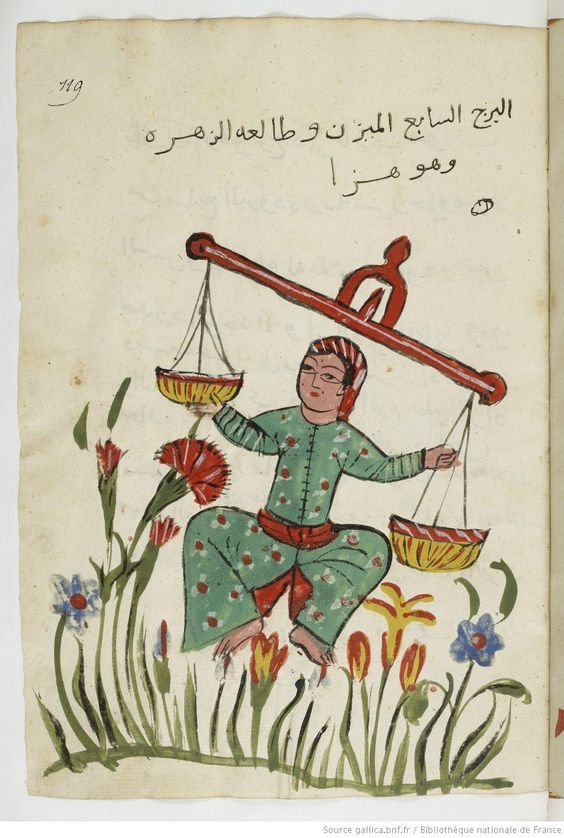 119
البرج السابع الميزن وطالعه الزهره
وهو هزا
Source gallica.bnf.fr / Bibliothèque nationale de France